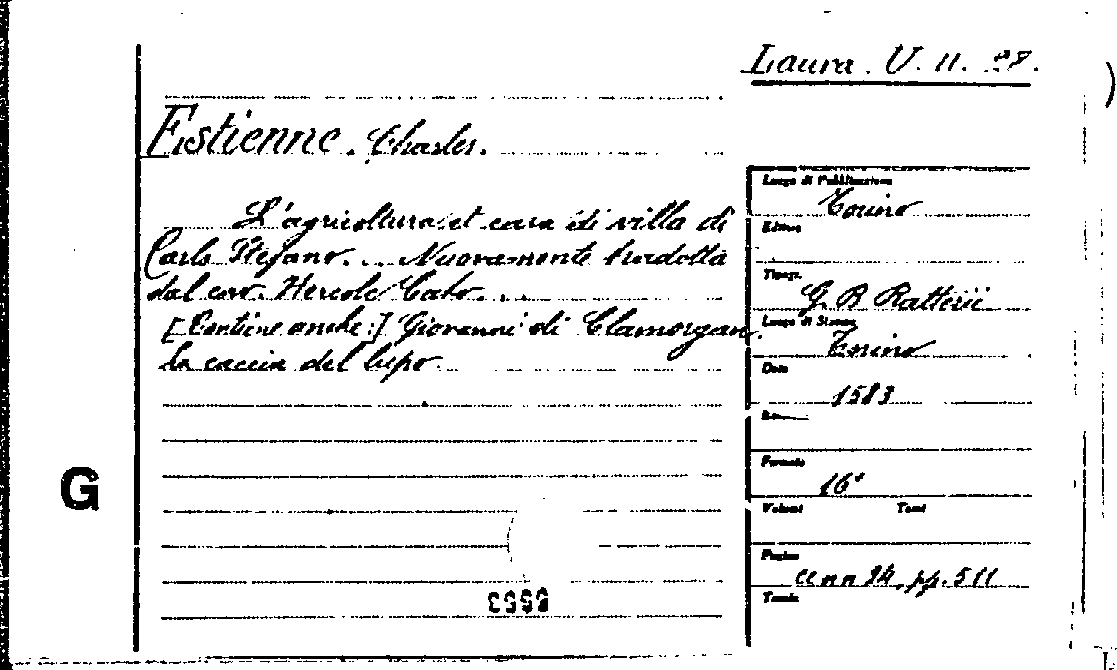 Laura. V. II. 28.
Estienne. Charles.
L'agricoltura et casa di villa di
Carlo Stefano. ... Nuovamente tradotta
dal cav. Hercole Cato. ...
[Contiene anche:] Giovanni di Clamorgan.
la caccia del lupo.
Luogo di Pubblicazione
Torino
Editore
Tipogr.
G. B. Ratterii
Luogo di Stampa
Torino
Data
1583
Formato
16°
Volumi Tomi
Pagine
cc nn 24, pp. 511
Tavole
G